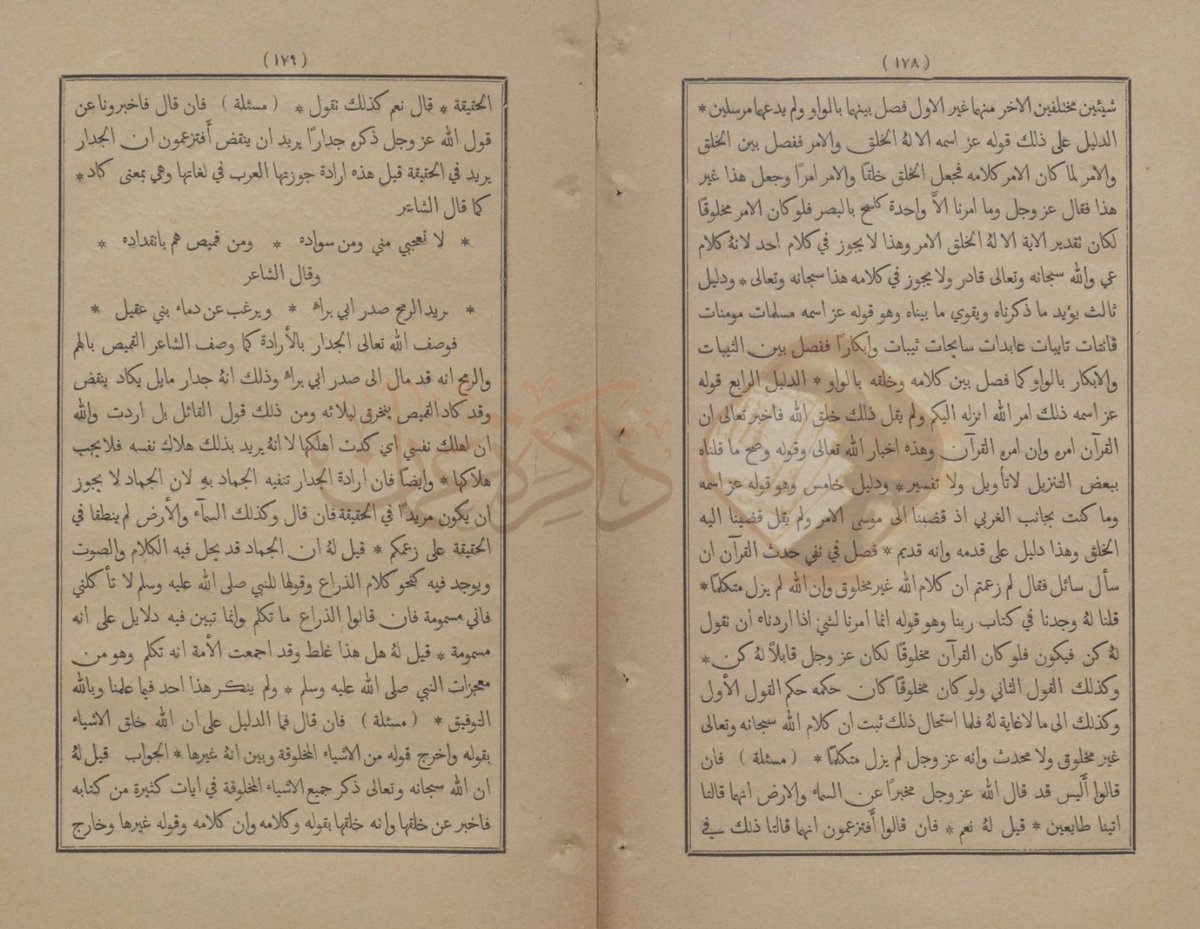 (١٧٨)
شيئين مختلفين الاخر منهما غير الاول فصل بينهما بالواو ولم يدعهما مرسلين *
الدليل على ذلك قوله عز اسمه الا لهُ الخلق والامر ففصل بين الخلق
والامر لما كان الامر كلامه فجعل الخلق خلقًا والامر امرًا وجعل هذا غير
هذا فقال عز وجل وما امرنا الاَّ واحدة كلمح بالبصر فلو كان الامر مخلوقًا
لكان تقدير الاية الا لهُ الخلق الامر وهذا لا يجوز في كلام احد لانهُ كلام
عي والله سبحانه وتعالى قادر ولا يجوز في كلامه هذا سبحانه وتعالى * ودليل
ثالث يؤيد ما ذكرناه ويقوي ما بيناه وهو قوله عز اسمه مسلمات مومنات
قانتات تايبات عابدات سايحات ثيبات وابكارًا ففصل بين الثيبات
والابكار بالواو كما فصل بين كلامه وخلقه بالواو * الدليل الرابع قوله
عز اسمه ذلك امر الله انزله اليكم ولم يقل ذلك خلق الله فاخبر تعالى ان
القرآن امره وان امره القرآن وهذه اخبار الله تعالى وقوله وصح ما قلناه
ببعض التنزيل لا تأويل ولا تفسير * ودليل خامس وهو قوله عز اسمه
وما كنت بجانب الغربي اذ قضينا الى موسى الامر ولم يقل قضينا اليه
الخلق وهذا دليل على قدمه وانه قديم * فصل في نفي حدث القرآن ان
سأل سائل فقال لم زعمتم ان كلام الله غير مخلوق وان الله لم يزل متكلمًا *
قلنا لهُ وجدنا في كتاب ربنا وهو قوله انما امرنا لشئ اذا اردناه ان نقول
لهُ كن فيكون فلو كان القرآن مخلوقًا لكان عز وجل قايلاً لهُ كن *
وكذلك القول الثاني ولو كان مخلوقًا كان حكمه حكم القول الأول
وكذلك الى ما لا غاية لهُ فلما استحال ذلك ثبت ان كلام الله سبحانه وتعالى
غير مخلوق ولا محدث وانه عز وجل لم يزل متكلمًا * (مسئلة) فان
قالوا أليس قد قال الله عز وجل مخبرًا عن السماء والارض انهما قالتا
اتينا طايعين * قيل لهُ نعم * فان قالوا أفتزعمون انهما قالتا ذلك في
(١٧٩)
الحقيقة * قال نعم كذلك نقول * (مسئلة) فان قال فاخبرونا عن
قول الله عز وجل ذكره جدارًا يريد ان ينقض أفتزعمون ان الجدار
يريد في الحقيقة قيل هذه ارادة جوزتها العرب في لغاتها وهي بمعنى كاد *
كما قال الشاعر
* لا تعجبي مني ومن سواده * ومن قميص هم بانقداده *
وقال الشاعر
* يريد الرمح صدر ابي براء * ويرغب عن دماء بني عقيل *
فوصف الله تعالى الجدار بالأرادة كما وصف الشاعر القميص بالهم
والرمح انه قد مال الى صدر ابي براء وذلك انهُ جدار مايل يكاد ينقض
وقد كاد القميص ينخرق لبلائه ومن ذلك قول القائل بل اردت والله
ان اهلك نفسي اي كدت اهلكها لا انهُ يريد بذلك هلاك نفسه فلا يجب
هلاكها * وايضًا فان ارادة الجدار تنفيه الجماد بهِ لان الجماد لا يجوز
ان يكون مريدًا في الحقيقة فان قال وكذلك السمآء والأرض لم ينطقا في
الحقيقة على زعمكم * قيل لهُ ان الجماد قد يحل فيه الكلام والصوت
ويوجد فيه كنحو كلام الذراع وقولها للنبي صلى الله عليه وسلم لا تأكلني
فاني مسمومة فان قالوا الذراع ما تكلم وانما تبين فيه دلايل على انه
مسمومة * قيل لهُ هل هذا غلط وقد اجمعت الأمة انه تكلم وهو من
معجزات النبي صلى الله عليه وسلم * ولم ينكر هذا احد فيما علمنا وبالله
التوفيق * (مسئلة) فان قال فما الدليل على ان الله خلق الاشياء
بقوله واخرج قوله من الاشياء المخلوقة وبين انهُ غيرها * الجواب قيل لهُ
ان الله سبحانه وتعالى ذكر جميع الاشياء المخلوقة في ايات كثيرة من كتابه
فاخبر عن خلقها وانه خلقها بقوله وكلامه وان كلامه وقوله غيرها وخارج